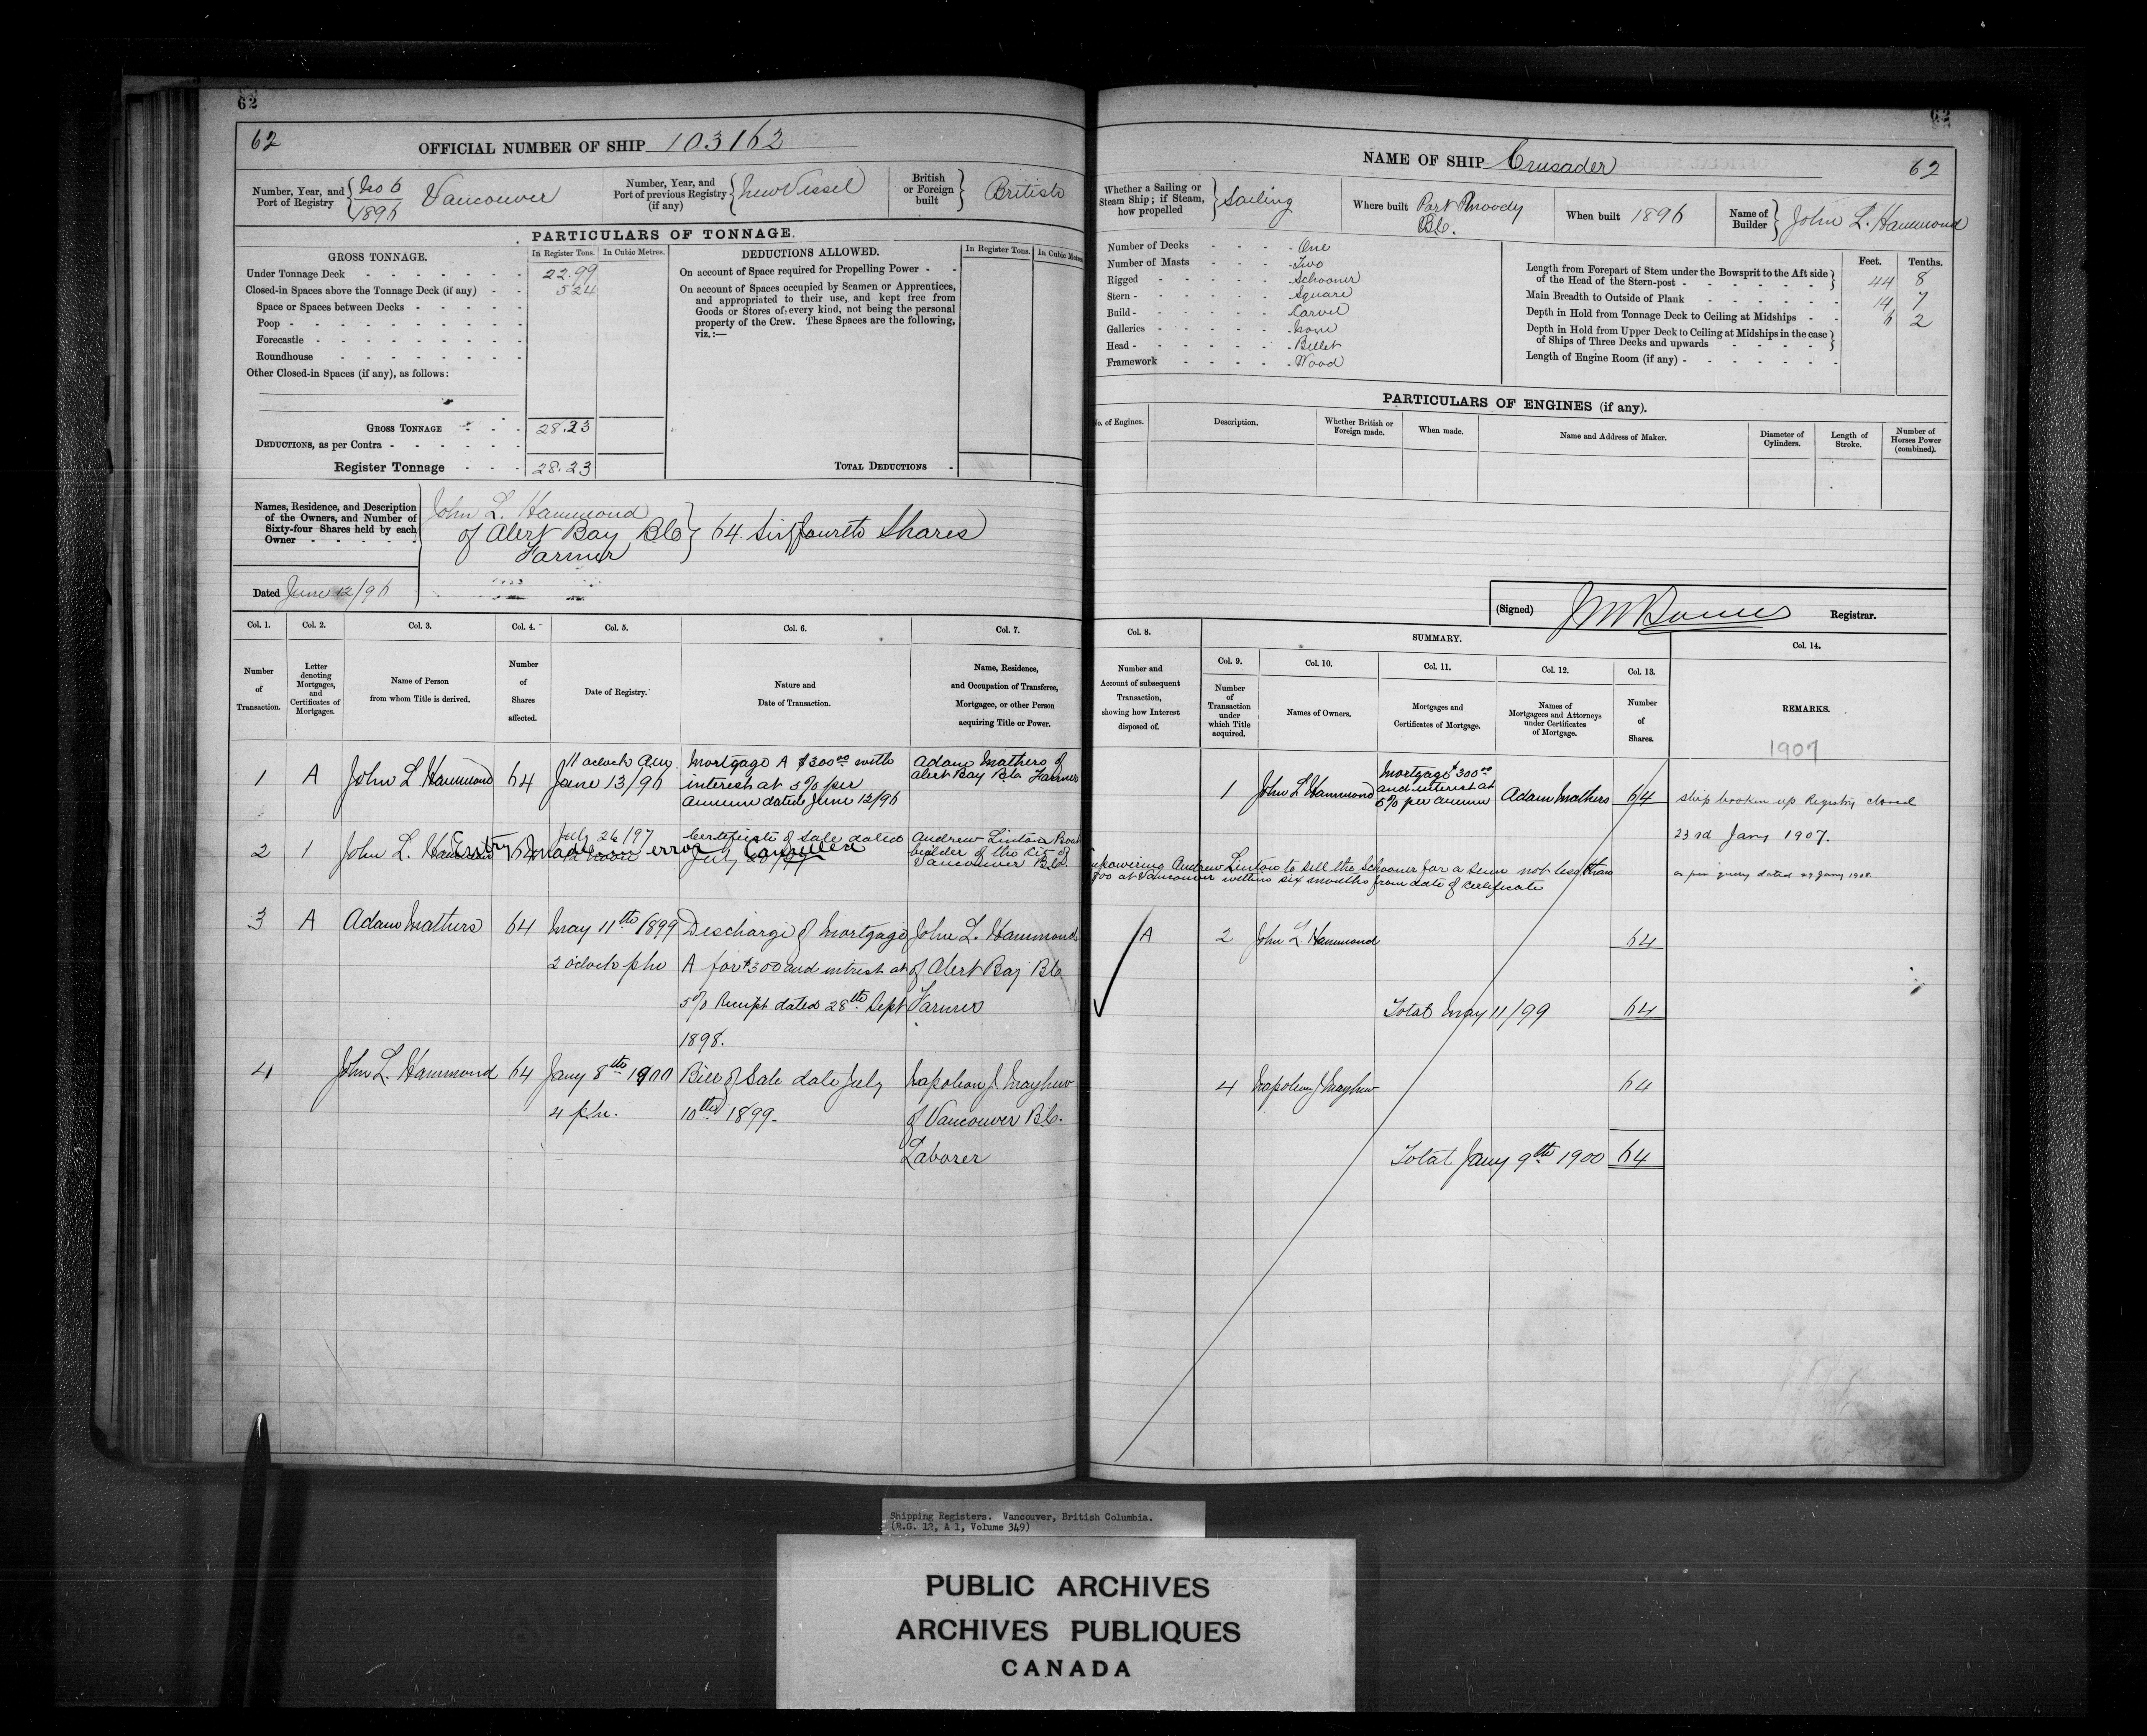 62
62
OFFICIAL NUMBER OF SHIP 103162
Number, Year, and Port of Registry { No 6 / 1896 Vancouver
Number, Year, and Port of previous Registry (if any) { New Vessel
British or Foreign built } British
PARTICULARS OF TONNAGE.
GROSS TONNAGE. In Register Tons. In Cubic Metres.
Under Tonnage Deck 22.99
Closed-in Spaces above the Tonnage Deck (if any) 524
Space or Spaces between Decks
Poop
Forecastle
Roundhouse
Other Closed-in Spaces (if any), as follows:
GROSS TONNAGE 28.23
DEDUCTIONS, as per Contra
Register Tonnage 28.23
DEDUCTIONS ALLOWED. In Register Tons. In Cubic Metres
On account of Space required for Propelling Power
On account of Spaces occupied by Seamen or Apprentices,
and appropriated to their use, and kept free from
Goods or Stores of every kind, not being the personal
property of the Crew. These Spaces are the following,
viz.:—
TOTAL DEDUCTIONS
Names, Residence, and Description
of the Owners, and Number of
Sixty-four Shares held by each
Owner
John L. Hammond
of Alert Bay B.C. } 64 Sixtyfourth Shares
Farmer
Dated June 12/96
Col. 1. Col. 2. Col. 3. Col. 4. Col. 5. Col. 6. Col. 7.
Number of Transaction.
Letter denoting Mortgages, and Certificates of Mortgages.
Name of Person from whom Title is derived.
Number of Shares affected.
Date of Registry.
Nature and Date of Transaction.
Name, Residence, and Occupation of Transferee, Mortgagee, or other Person acquiring Title or Power.
1 A John L Hammond 64 11 oclock Am. June 13/96
Mortgage A $300.00 with
interest at 5% per
annum dated June 12/96
Adam Mathers of
Alert Bay B.C. Farmer
2 1 John L. Hammond 64 July 26/97
Certificate of Sale dated
July
Entry made in error Cancelled
Andrew Linton Boat
builder of the City of
Vancouver B.C.
3 A Adam Mathers 64 May 11th 1899
2 oclock pm
Discharge of Mortgage
A for $300 and intrest at
5% Receipt dated 28th Sept
1898.
John L. Hammond
of Alert Bay B.C.
Farmer
4 John L. Hammond 64 Jany 8th 1900
4 p.m.
Bill of Sale date July
10th 1899.
Napoleon J. Mayhew
of Vancouver B.C.
Laborer
62
NAME OF SHIP Crusader 62
Whether a Sailing or Steam Ship; if Steam, how propelled } Sailing
Where built Port Moody B.C.
When built 1896
Name of Builder } John L. Hammond
Number of Decks One
Number of Masts Two
Rigged Schooner
Stern Square
Build Carvel
Galleries None
Head Billet
Framework Wood
Feet. Tenths.
Length from Forepart of Stem under the Bowsprit to the Aft side
of the Head of the Stern-post 44 8
Main Breadth to Outside of Plank 14 7
Depth in Hold from Tonnage Deck to Ceiling at Midships 6 2
Depth in Hold from Upper Deck to Ceiling at Midships in the case
of Ships of Three Decks and upwards
Length of Engine Room (if any)
PARTICULARS OF ENGINES (if any).
No. of Engines.
Description.
Whether British or Foreign made.
When made.
Name and Address of Maker.
Diameter of Cylinders.
Length of Stroke.
Number of Horses Power (combined).
(Signed) Registrar.
Col. 8. SUMMARY. Col. 14.
Col. 9. Col. 10. Col. 11. Col. 12. Col. 13.
Number and Account of subsequent Transaction, showing how Interest disposed of.
Number of Transaction under which Title acquired.
Names of Owners.
Mortgages and Certificates of Mortgage.
Names of Mortgagees and Attorneys under Certificates of Mortgage.
Number of Shares.
REMARKS.
1907
1 John L Hammond
Mortgage $300.00
and interest at
5% per annum
Adam Mathers 64
Ship broken up Registry closed
23rd Jany 1907.
Empowering Andrew Linton to sell the Schooner for a sum not less than
at Vancouver within six months from date of Certificate
A 2 John L Hammond 64
Total May 11/99 64
4 Napoleon J Mayhew 64
Total Jany 9th 1900 64
Shipping Registers. Vancouver, British Columbia.
(R.G. 12, A 1, Volume 349)
PUBLIC ARCHIVES
ARCHIVES PUBLIQUES
CANADA